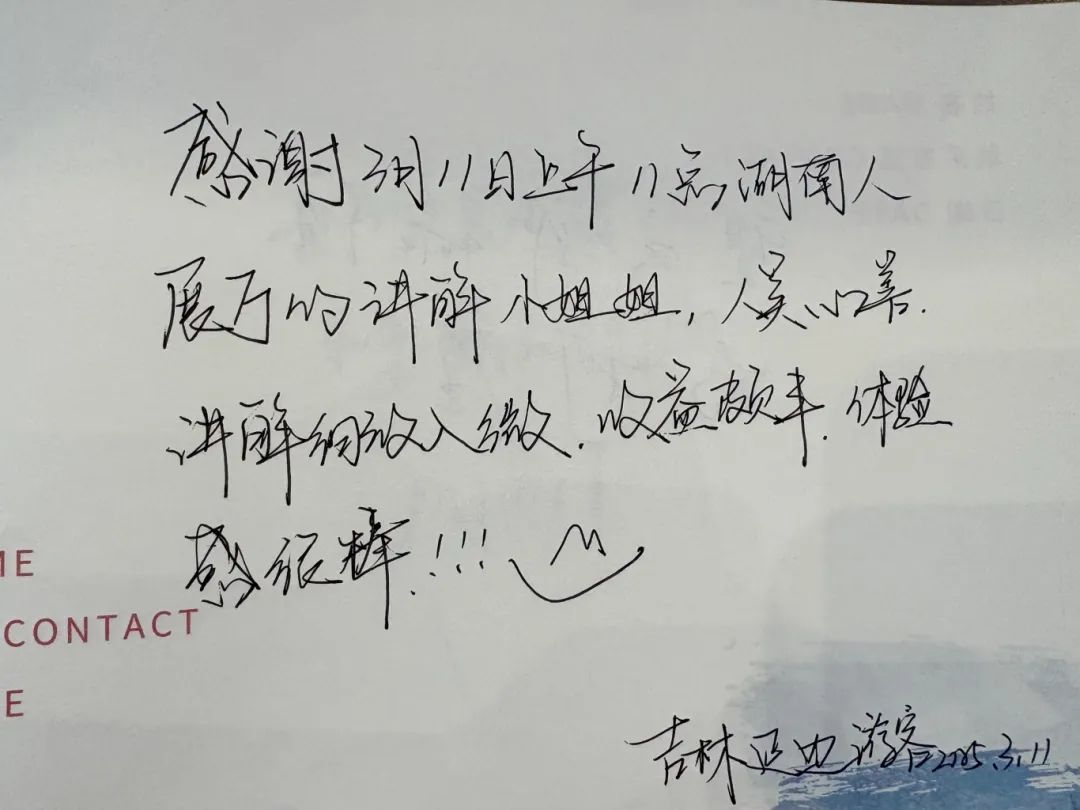 感谢3月11日上午11点湖南人
展厅的讲解小姐姐,人美心善.
讲解细致入微.收益颇丰.体验
感很棒!!!
ME
CONTACT
E
吉林延边游客2025.3.11